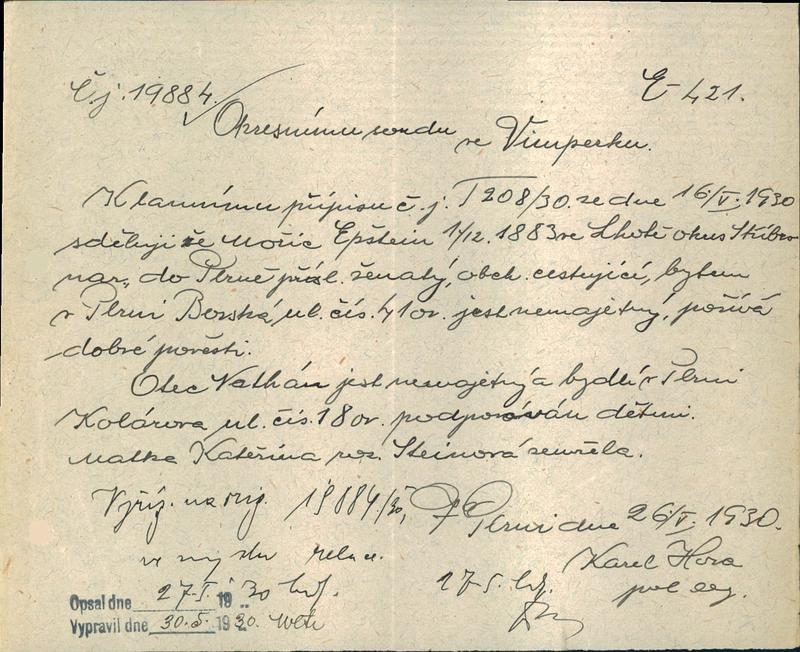 Č.j. 19884. E-421.
Okresnímu soudu ve Vimperku.
K tamnímu přípisu č. j. T 208/30. ze dne 16/V. 1930
sděluji že Mořic Epstein 1/12. 1883 ve Lhotě okres Stříbro
nar., do Plzně přísl. ženatý, obch. cestující, bytem
v Plzni Borská ul. čís. 41 or. jest nemajetný, požívá
dobré pověsti.
Otec Nathán jest nemajetný a bydlí v Plzni
Kolárova ul. čís. 18 or. podporován dětmi.
Matka Kateřina roz. Steinová zemřela.
Vyříz. na orig. 19884/30,
ve smyslu relace.
V Plzni dne 26/V. 1930.
Karel Hora
pol. ag.
27-5.
Opsal dne 27-5. 19 30
Vypravil dne 30.5. 1930.